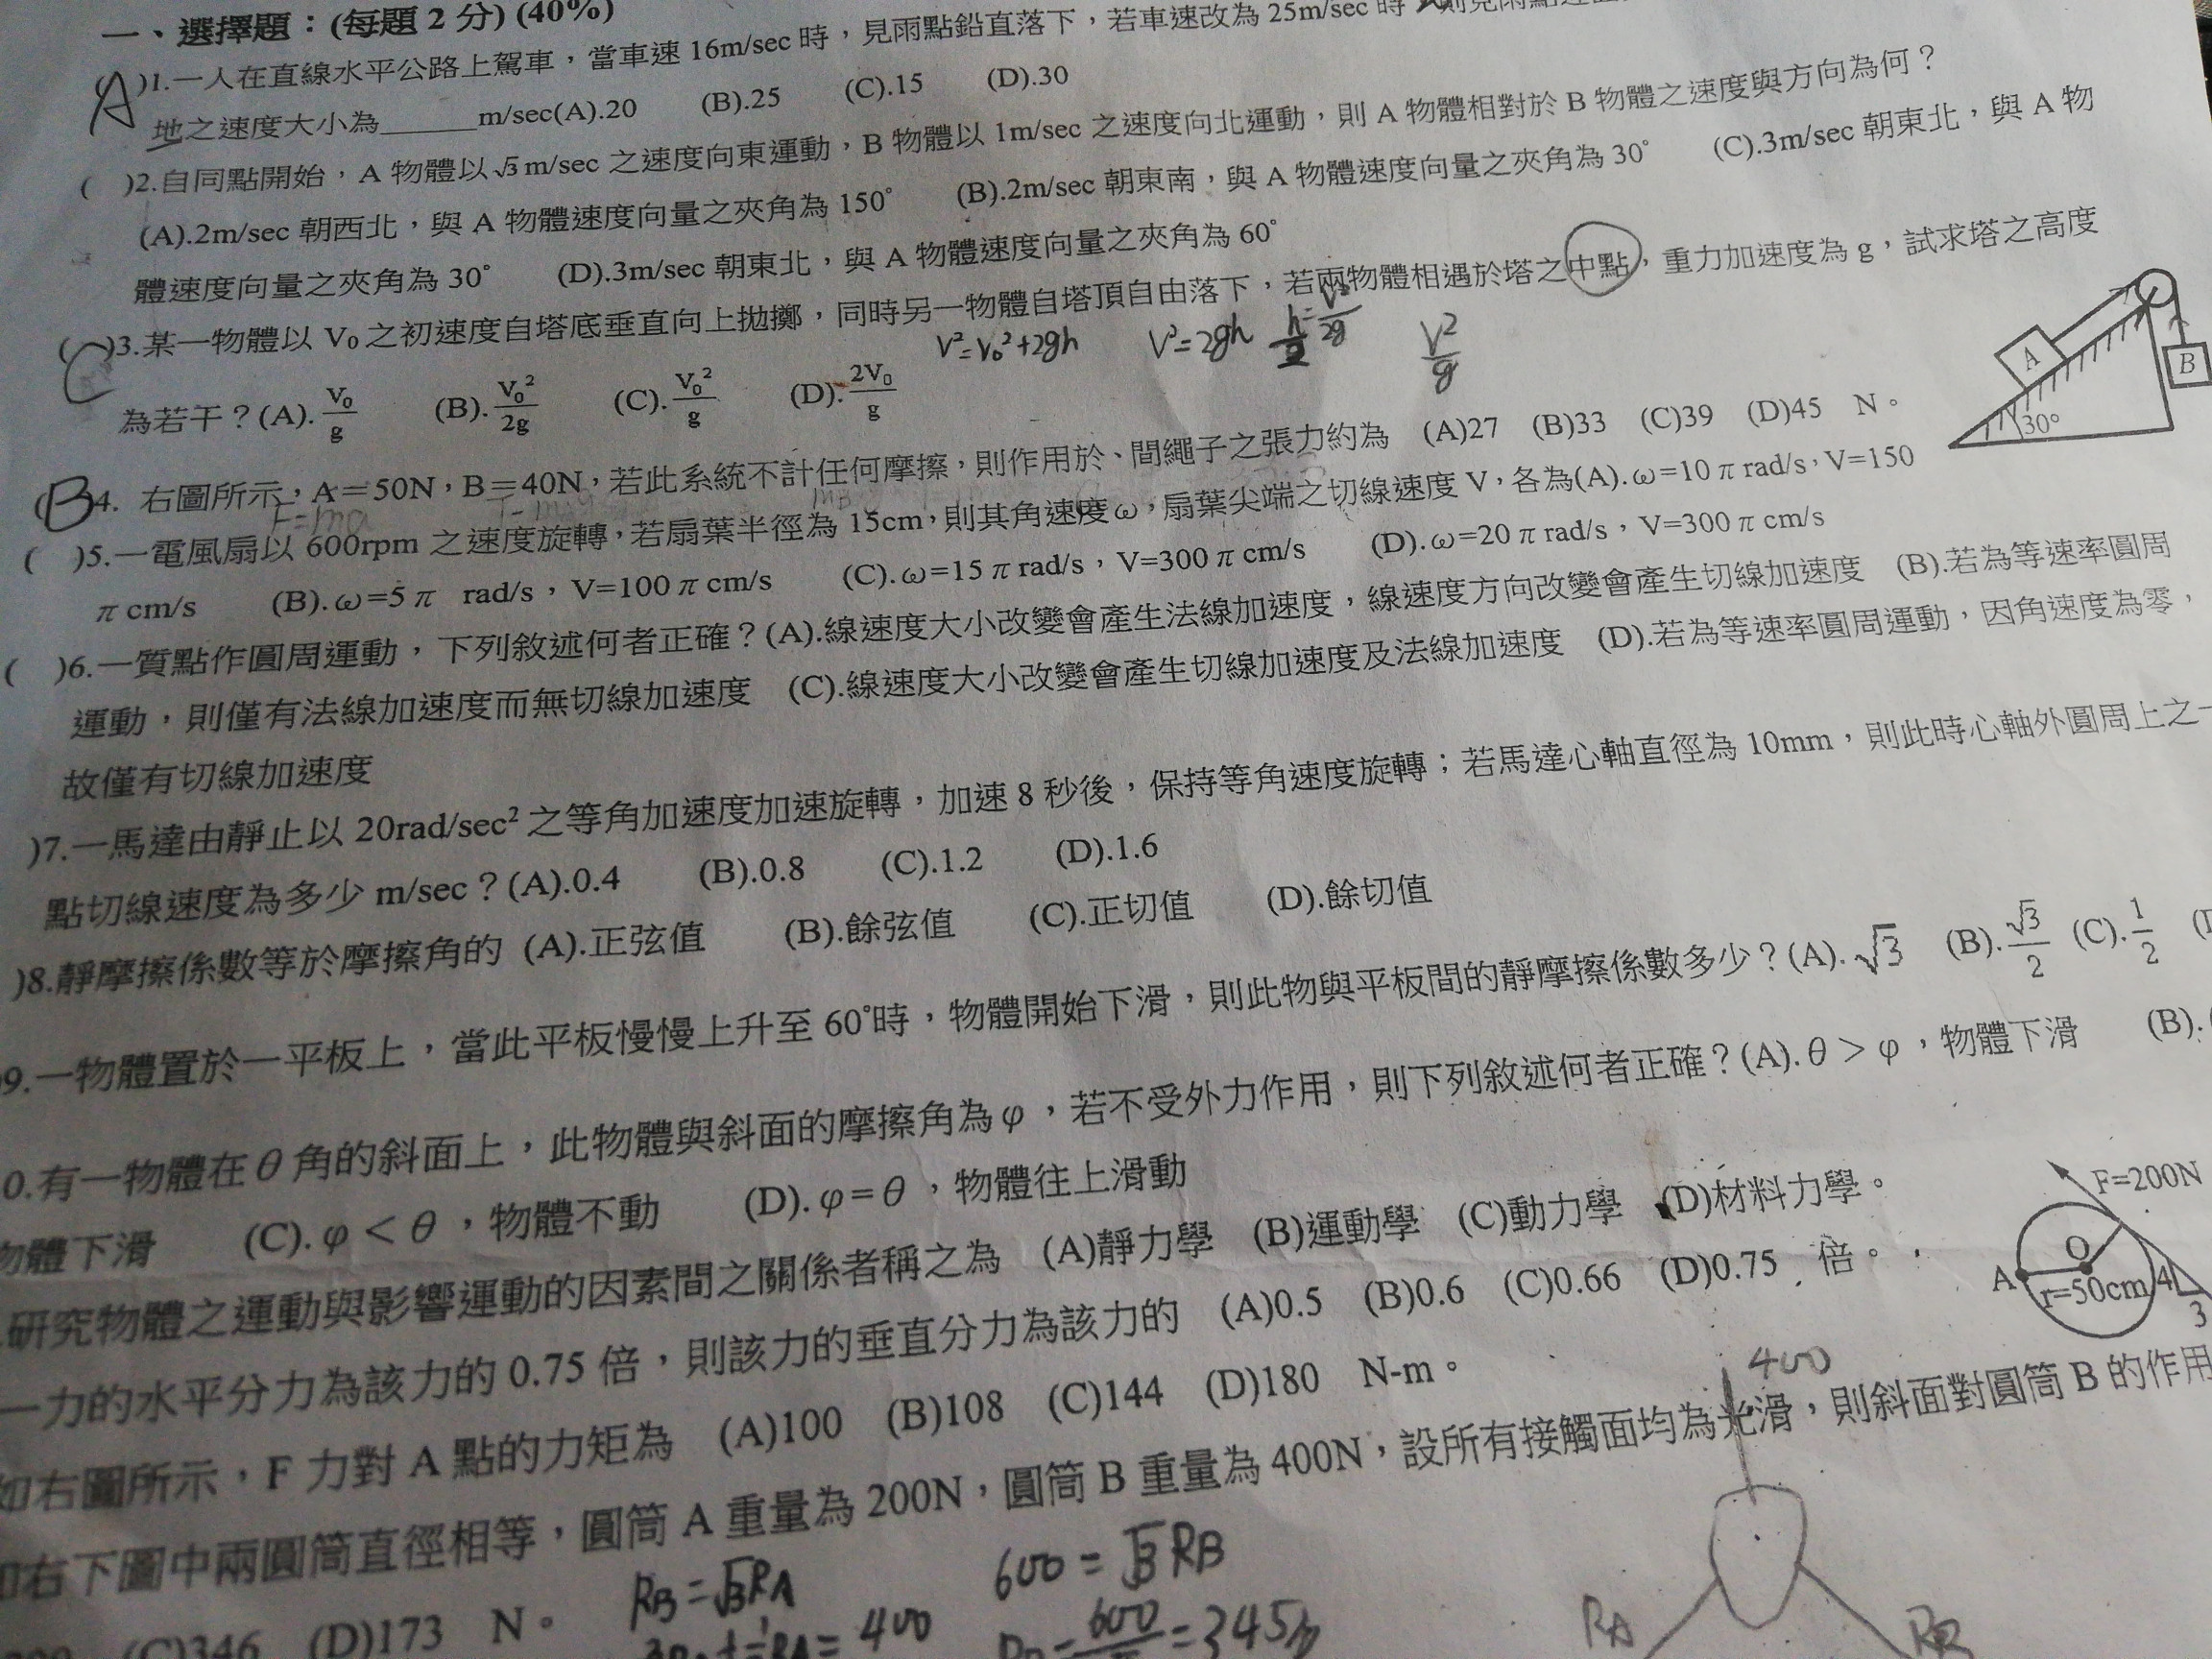 一、選擇題：(每題 2 分) (40%)
(A)1.一人在直線水平公路上駕車，當車速 16m/sec 時，見雨點鉛直落下，若車速改為 25m/sec 時
地之速度大小為______m/sec(A).20 (B).25 (C).15 (D).30
( )2.自同點開始，A 物體以√3 m/sec 之速度向東運動，B 物體以 1m/sec 之速度向北運動，則 A 物體相對於 B 物體之速度與方向為何？
(A).2m/sec 朝西北，與 A 物體速度向量之夾角為 150° (B).2m/sec 朝東南，與 A 物體速度向量之夾角為 30° (C).3m/sec 朝東北，與 A 物
體速度向量之夾角為 30° (D).3m/sec 朝東北，與 A 物體速度向量之夾角為 60°
(C)3.某一物體以 V₀ 之初速度自塔底垂直向上拋擲，同時另一物體自塔頂自由落下，若兩物體相遇於塔之中點，重力加速度為 g，試求塔之高度
V²=V₀²+2gh V²=2gh
為若干？(A). V₀/g (B). V₀²/2g (C). V₀²/g (D). 2V₀/g
V²/g
A B 30°
(B)4. 右圖所示，A＝50N，B＝40N，若此系統不計任何摩擦，則作用於、間繩子之張力約為 (A)27 (B)33 (C)39 (D)45 N。
F=ma
( )5.一電風扇以 600rpm 之速度旋轉，若扇葉半徑為 15cm，則其角速度ω，扇葉尖端之切線速度 V，各為(A).ω=10 π rad/s，V=150
π cm/s (B).ω=5 π rad/s，V=100 π cm/s (C).ω=15 π rad/s，V=300 π cm/s (D).ω=20 π rad/s，V=300 π cm/s
( )6.一質點作圓周運動，下列敘述何者正確？(A).線速度大小改變會產生法線加速度，線速度方向改變會產生切線加速度 (B).若為等速率圓周
運動，則僅有法線加速度而無切線加速度 (C).線速度大小改變會產生切線加速度及法線加速度 (D).若為等速率圓周運動，因角速度為零，
故僅有切線加速度
)7.一馬達由靜止以 20rad/sec² 之等角加速度加速旋轉，加速 8 秒後，保持等角速度旋轉；若馬達心軸直徑為 10mm，則此時心軸外圓周上之一
點切線速度為多少 m/sec？(A).0.4 (B).0.8 (C).1.2 (D).1.6
)8.靜摩擦係數等於摩擦角的 (A).正弦值 (B).餘弦值 (C).正切值 (D).餘切值
9.一物體置於一平板上，當此平板慢慢上升至 60°時，物體開始下滑，則此物與平板間的靜摩擦係數多少？(A). √3 (B). √3/2 (C). 1/2
0.有一物體在θ角的斜面上，此物體與斜面的摩擦角為φ，若不受外力作用，則下列敘述何者正確？(A).θ＞φ，物體下滑 (B).
物體下滑 (C).φ＜θ，物體不動 (D).φ=θ，物體往上滑動
.研究物體之運動與影響運動的因素間之關係者稱之為 (A)靜力學 (B)運動學 (C)動力學 (D)材料力學。
一力的水平分力為該力的 0.75 倍，則該力的垂直分力為該力的 (A)0.5 (B)0.6 (C)0.66 (D)0.75 倍。
F=200N
O
A r=50cm 4
3
如右圖所示，F 力對 A 點的力矩為 (A)100 (B)108 (C)144 (D)180 N-m。
400
如右下圖中兩圓筒直徑相等，圓筒 A 重量為 200N，圓筒 B 重量為 400N，設所有接觸面均為光滑，則斜面對圓筒 B 的作用
(C)346 (D)173 N。
RB=√3RA 600=√3RB
RA RB